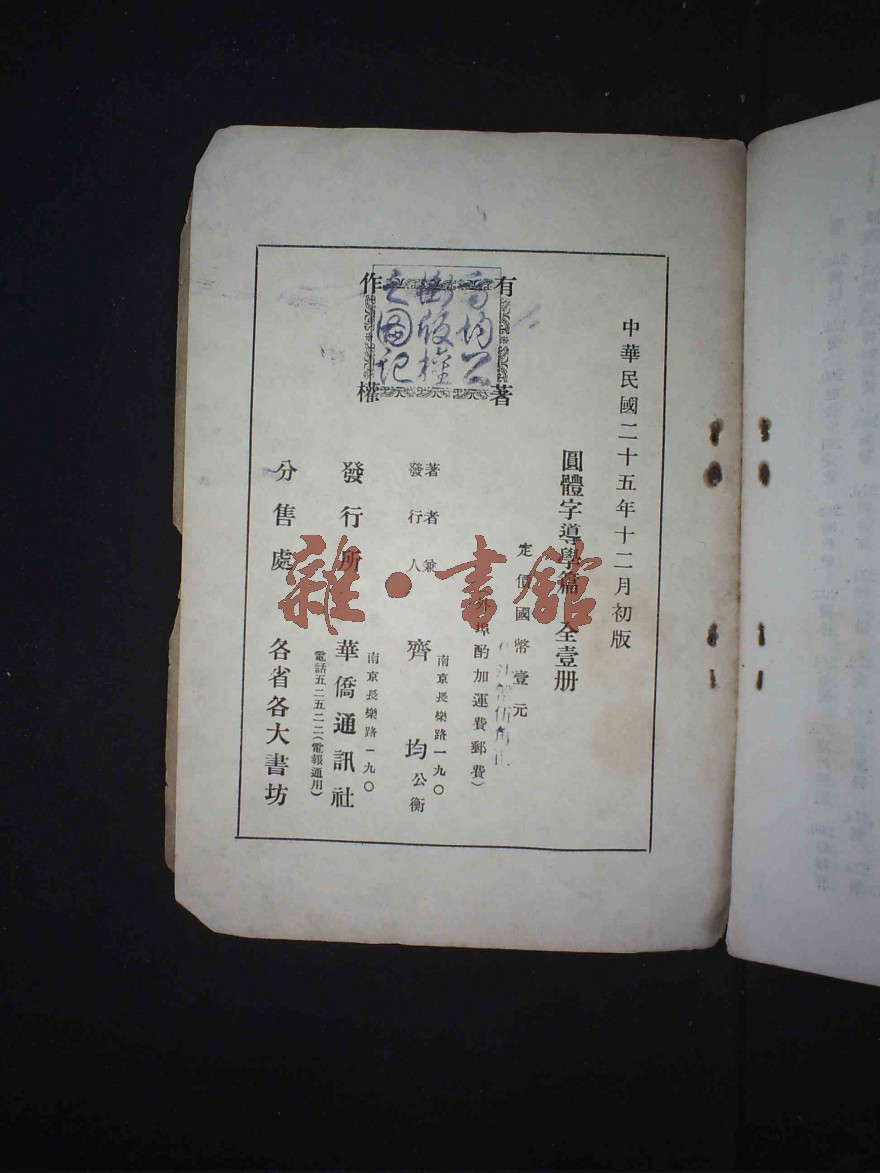 中華民國二十五年十二月初版
圓體字導學篇 全壹册
定價國幣壹元
外埠酌加運費郵費）
有著
作權
版權
圖記
著者兼
發行人
齊均公衡
南京長樂路一九〇
發行所
華僑通訊社
南京長樂路一九〇
電話五二五二二（電報通用）
分售處
各省各大書坊
雜·書館